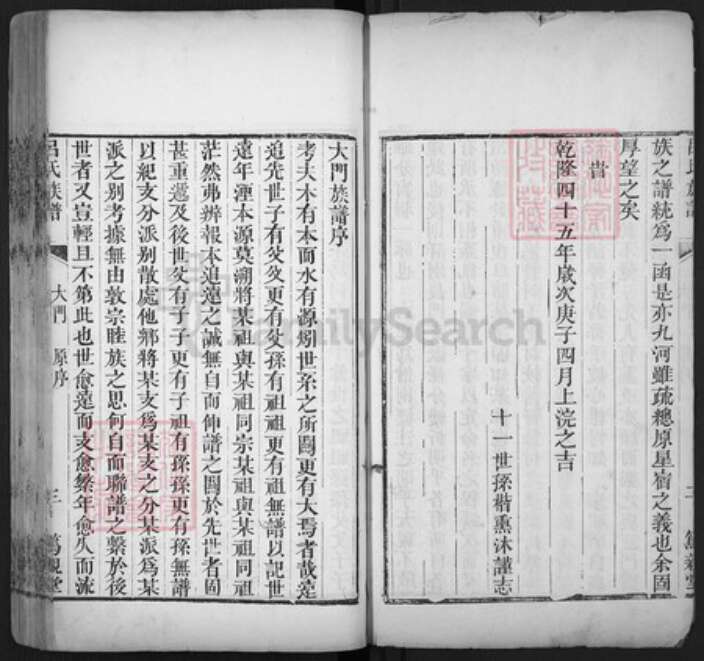 族之譜統爲一函是亦九河雖疏總原星宿之義也余固
厚望之矣
旹
乾隆四十五年歲次庚子四月上浣之吉
十一世孫楷熏沐謹志
二
大門族譜序
考夫木有本而水有源矧世系之所關更有大焉者哉遠
追先世子有父父更有父孫有祖祖更有祖無譜以記世
遠年湮本源莫溯將某祖與某祖同宗某祖與某祖同祖
茫然弗辨報本追遠之誠無自而伸譜之關於先世者固
甚重遞及後世父有子子更有子祖有孫孫更有孫無譜
以紀支分派別散處他鄉將某支爲某支之分某派爲某
派之別考據無由敦宗睦族之思何自而聯譜之繫於後
世者又豈輕且不第此也世愈遠而支愈繁年愈久而流
呂氏族譜
大門 原序
三
篤親堂
FamilySearch